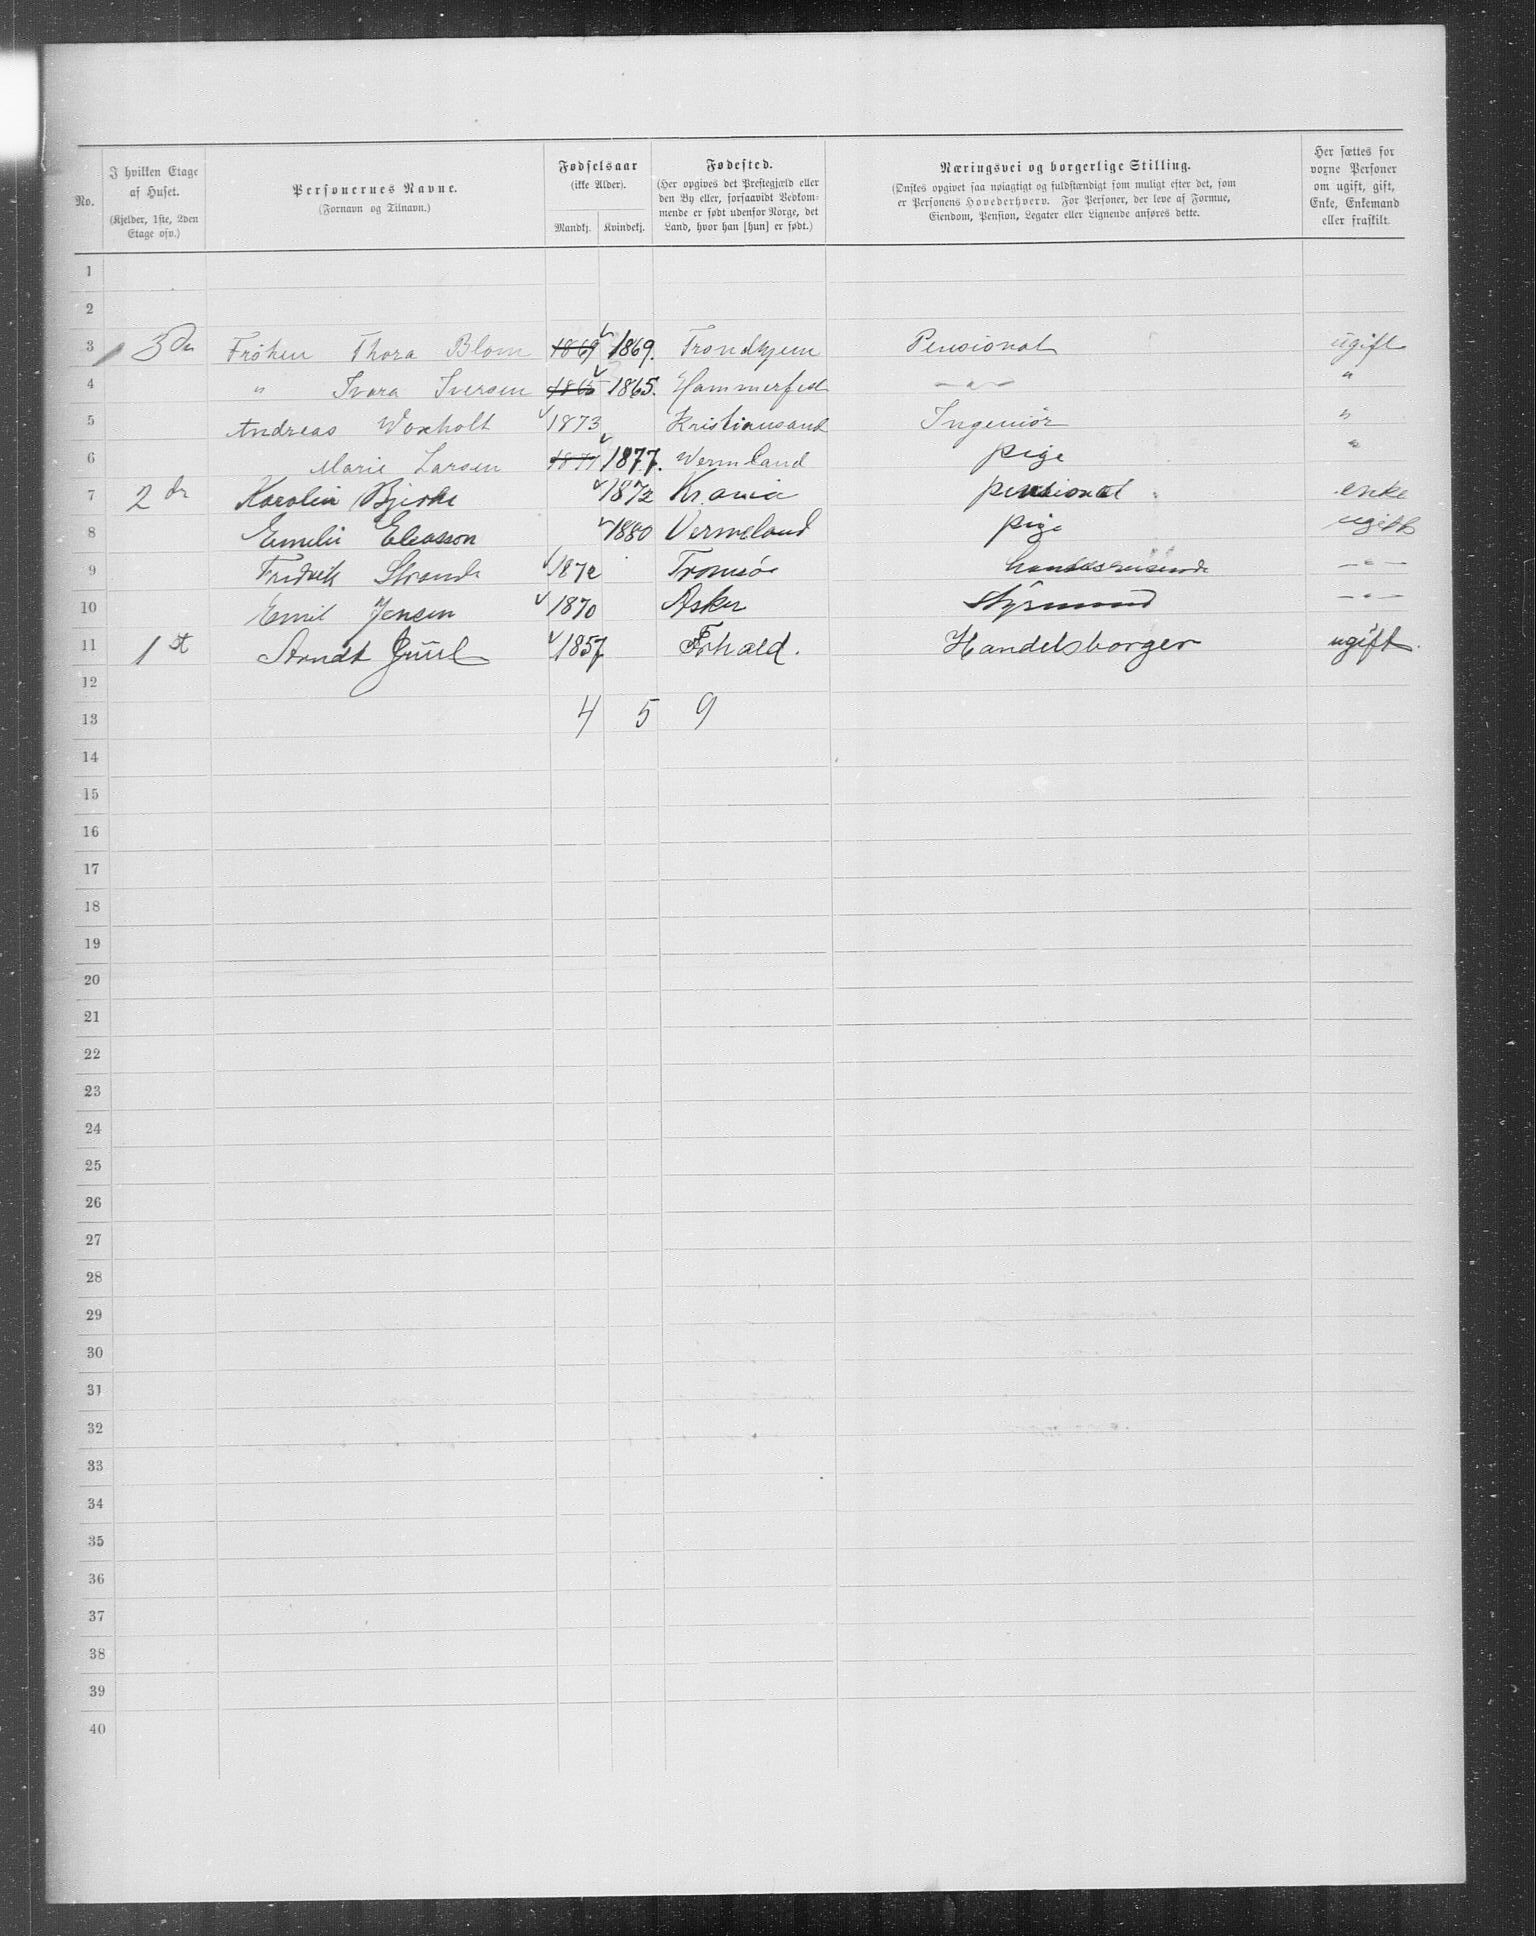 No.
I hvilken Etage
af Huset.
(Kjelder, 1ste, 2den
Etage osv.)
Personernes Navne.
(Fornavn og Tilnavn.)
Fødselsaar
(ikke Alder).
Mandkj. Kvindekj.
Fødested.
(Her opgives det Prestegjæld eller
den By eller, forsaavidt Vedkom-
mende er født udenfor Norge, det
Land, hvor han [hun] er født.)
Næringsvei og borgerlige Stilling.
(Ønskes opgivet saa nøiagtigt og fuldstændigt som muligt efter det, som
er Personens Hovederhverv. For Personer, der leve af Formue,
Eiendom, Pension, Legater eller Lignende anføres dette.
Her sættes for
voxne Personer
om ugift, gift,
Enke, Enkemand
eller fraskilt.
1
2
3 3die Frøken Thora Blom 1869 1869. Trondhjem Pensionat ugift
4 " Ivara Iversen 1865 1865. Hammerfest —"— "
5 Andreas Woxholt 1873 Kristiansand Ingeniør "
6 Marie Larsen 1877 1877. Wermland pige "
7 2de Karolin Bjerke 1872 Kr.ania pensionat enke
8 Emelie Eleasson 1880 Vermeland pige ugift
9 Fredrik Strande 1872 Tromsøe handelsreisende —"—
10 Emil Jensen 1870 Asker Styrmand —"—
11 1st Arndt Juul 1857 Frhald. Handelsborger ugift.
12
13 4 5 9
14
15
16
17
18
19
20
21
22
23
24
25
26
27
28
29
30
31
32
33
34
35
36
37
38
39
40